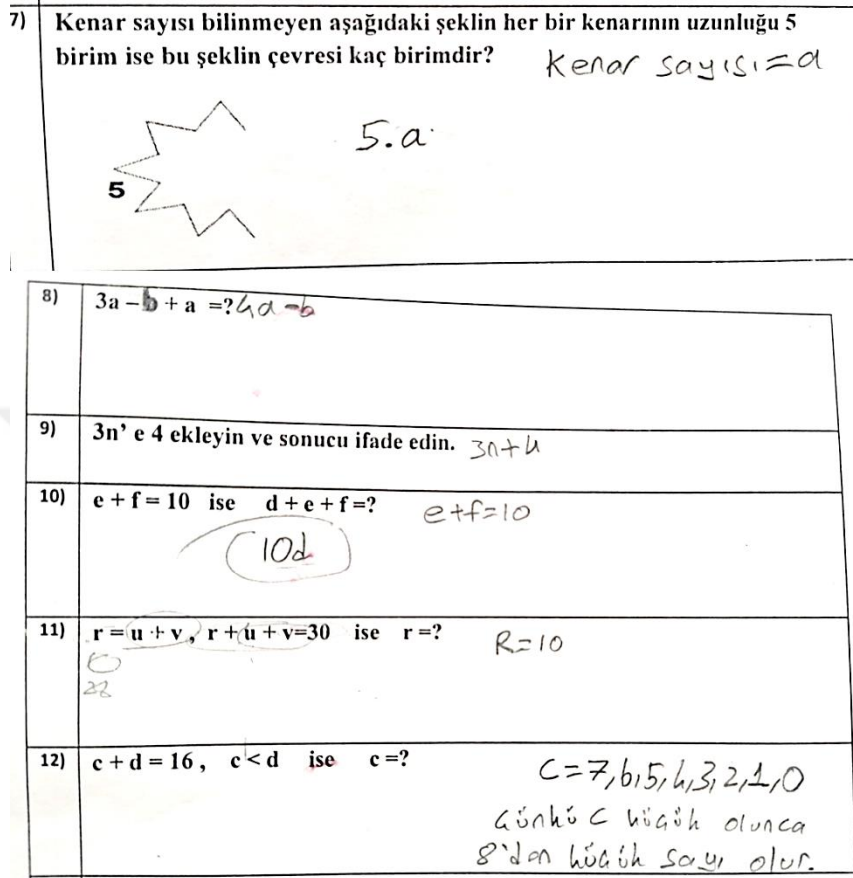 7) Kenar sayısı bilinmeyen aşağıdaki şeklin her bir kenarının uzunluğu 5
birim ise bu şeklin çevresi kaç birimdir?
Kenar sayısı=a
5.a
5
8) 3a – b + a =? 4a-b
9) 3n’ e 4 ekleyin ve sonucu ifade edin. 3n+4
10) e + f = 10 ise d + e + f =? e+f=10
10d
11) r = u + v , r + u + v=30 ise r =? R=10
12) c + d = 16 , c < d ise c =?
C=7,6,5,4,3,2,1,0
Çünkü C küçük olunca
8'den küçük sayı olur.